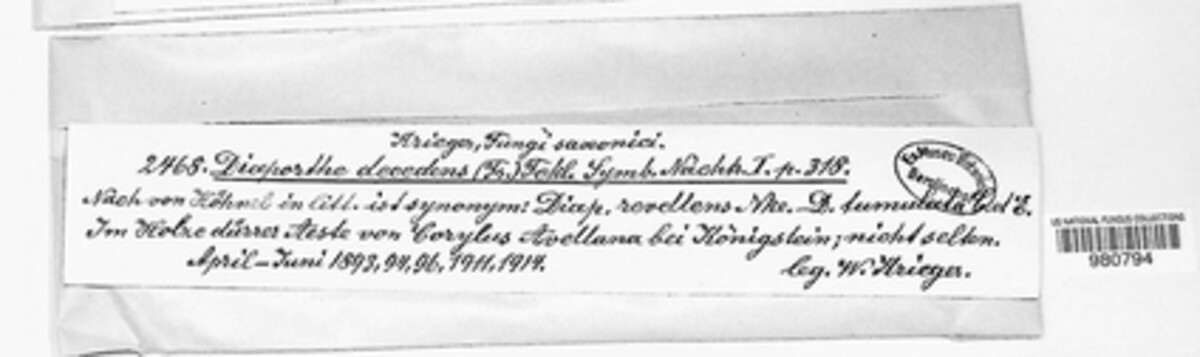 Krieger, Fungi saxonici.
2468. Diaporthe decedens (Fr.) Fckl. Symb. Nachtr. I. p. 318.
Nach von Höhnel in litt. ist synonym: Diap. revellens Nke. D. tumulata C et E.
Im Holze dürrer Aeste von Corylus Avellana bei Königstein; nicht selten.
April-Juni 1893, 94, 96, 1911, 1914.
leg. W. Krieger.
Ex Museo
US NATIONAL FUNGUS COLLECTIONS
980794